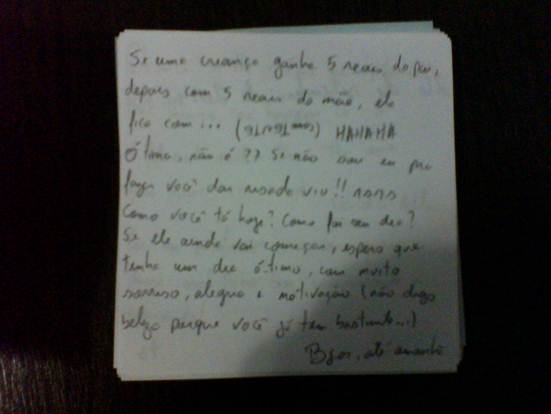 Se uma criança ganha 5 reais do pai,
depois com 5 reais da mãe, ela
fica com... (contente) HAHAHA
Ótima, não é?? Se não sou eu pra
fazer você dar risada viu!! rsrsrs
Como você tá hoje? Como foi seu dia?
Se ele ainda vai começar, espero que
tenha um dia ótimo, com muito
sorriso, alegria e motivação (não digo
beleza porque você já tem bastante...)
Bjos, até amanhã